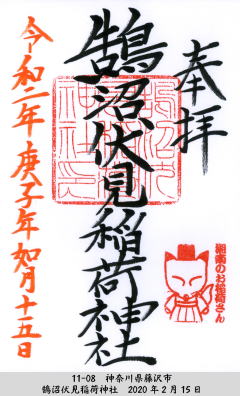 奉拝
鵠沼伏見稲荷神社
令和二年庚子年如月十五日
湘南のお稲荷さん
11-08 神奈川県藤沢市
鵠沼伏見稲荷神社 2020年2月15日